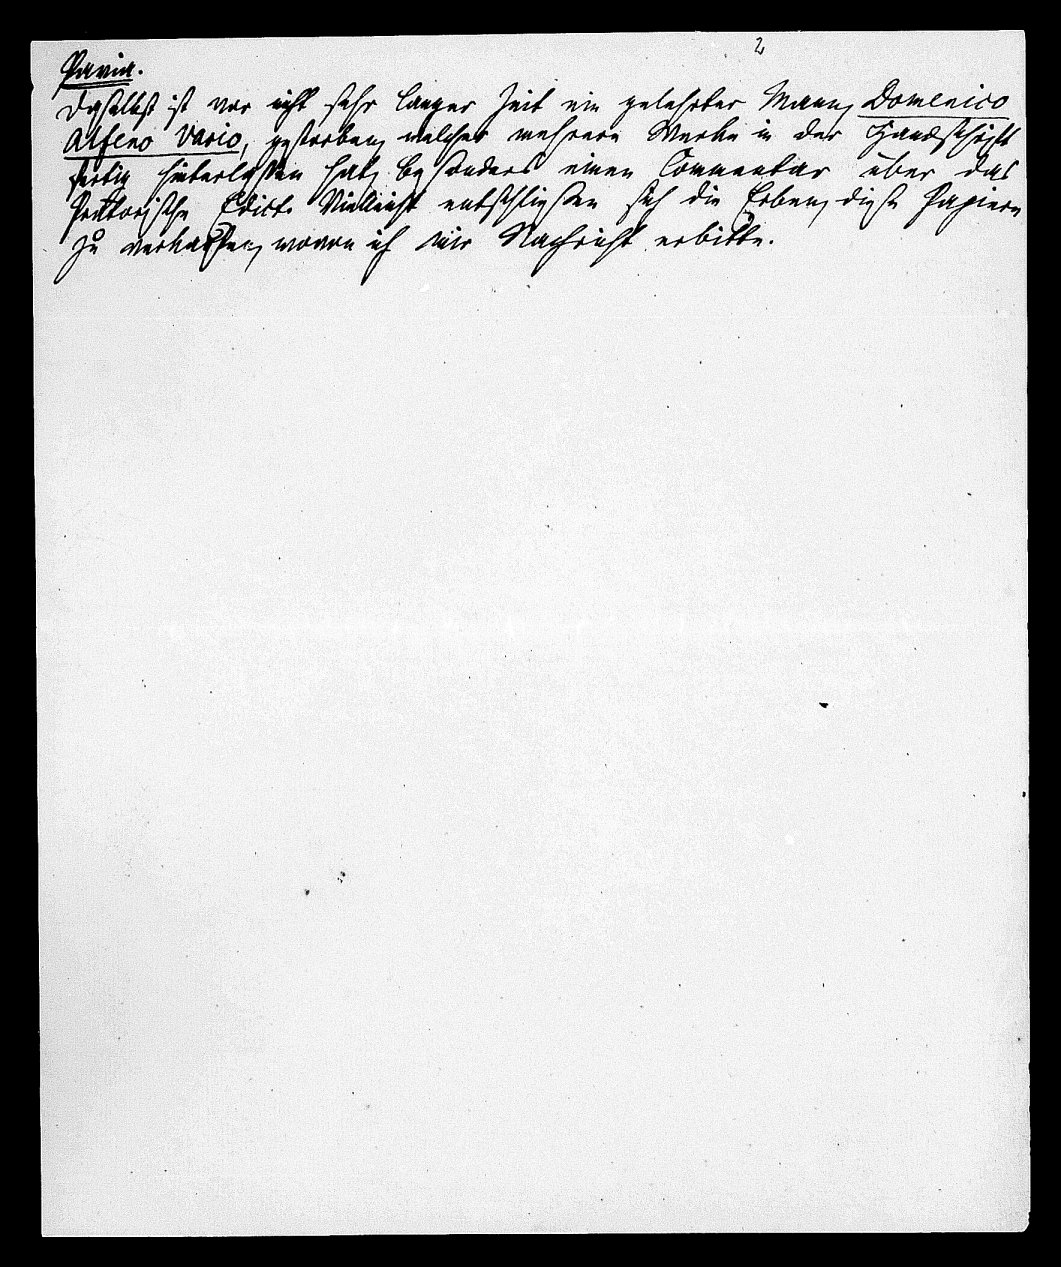 2
Pavia.
Daselbst ist vor nicht sehr langer Zeit ein gelehrter Mann, Domenico
Alfeno Vario, gestorben, welcher mehrere Werke in der Handschrift
fertig hinterlassen hat, besonders einen Commentar über das
Prätorische Edict. Vielleicht entschließen sich die Erben, diese Papiere
zu verkaufen, wovon ich mir Nachricht erbitte.